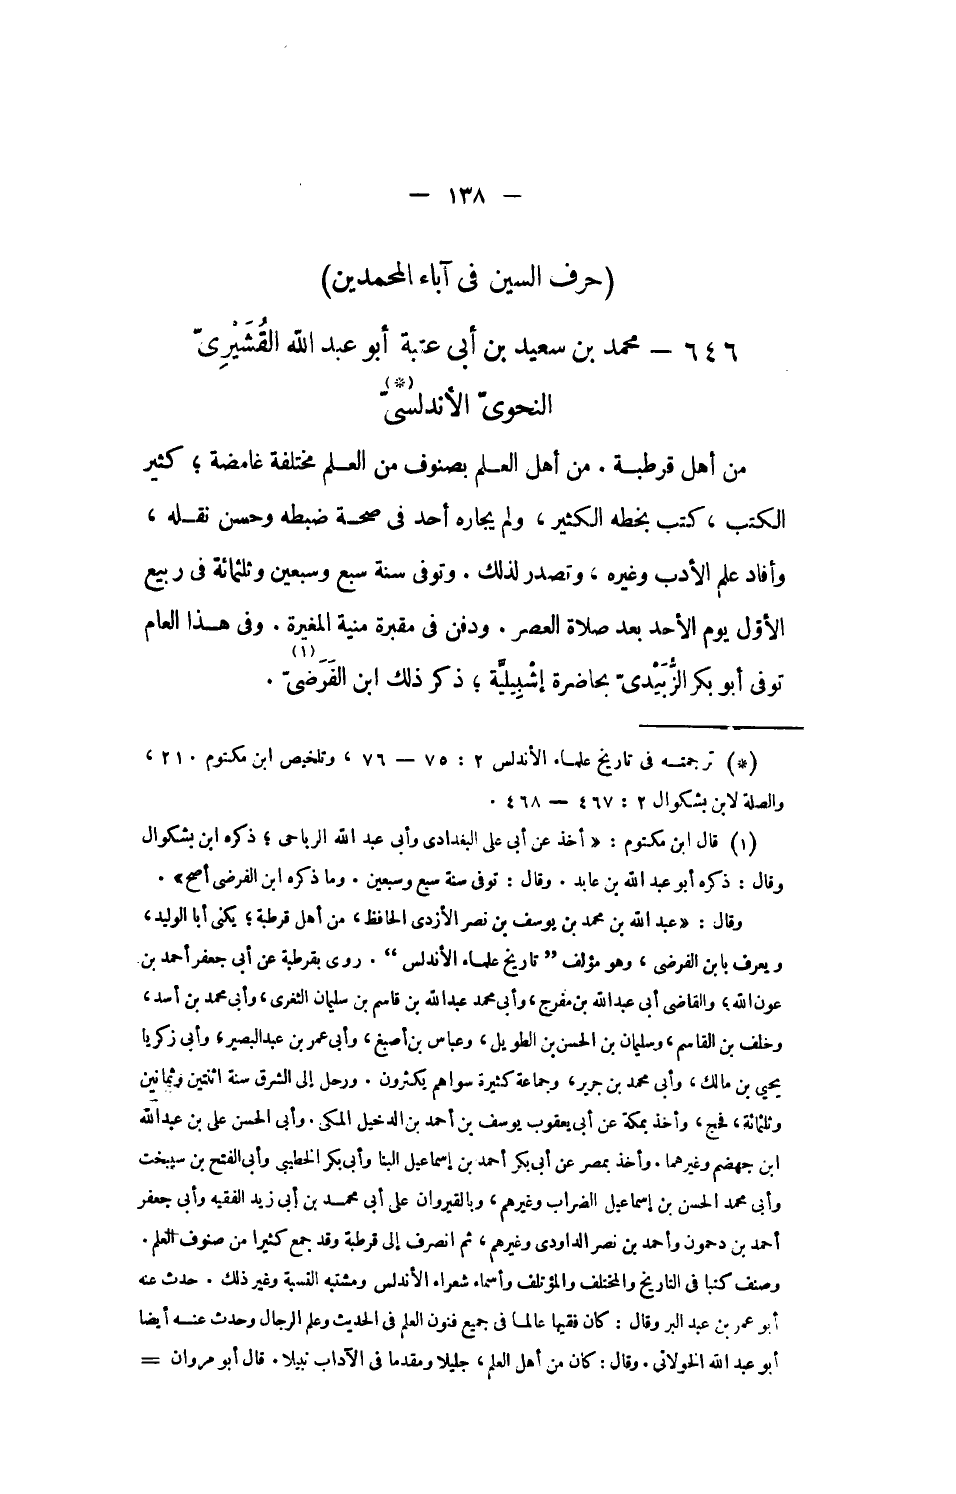 — ١٣٨ —
(حرف السين فى آباء المحمدين)
٦٤٦ — محمد بن سعيد بن أبى عتبة أبو عبد الله القُشَيْرِىّ
النحوىّ الأندلسىّ (*)
من أهل قرطبـة . من أهل العـلم بصنوف من العـلم مختلفة غامضة ؛ كثير
الكتب ، كتب بخطه الكثير ، ولم يجاره أحد فى صحـة ضبطه وحسن نقـله ،
وأفاد علم الأدب وغيره ، وتصدر لذلك . وتوفى سنة سبع وسبعين وثلثمائة فى ربيع
الأوّل يوم الأحد بعد صلاة العصر . ودفن فى مقبرة منية المغيرة . وفى هـذا العام
توفى أبو بكر الزُّبَيْدىّ بحاضرة إشْبِيليَّة ؛ ذكر ذلك ابن الفَرَضىّ (١) .
(*) ترجمتـه فى تاريخ علمـاء الأندلس ٢ : ٧٥ — ٧٦ ، وتلخيص ابن مكتوم ٢١٠ ،
والصلة لابن بشكوال ٢ : ٤٦٧ — ٤٦٨ .
(١) قال ابن مكتوم : « أخذ عن أبى على البغدادى وأبى عبد الله الرباحى ؛ ذكره ابن بشكوال
وقال : ذكره أبو عبد الله بن عابد . وقال : توفى سنة سبع وسبعين . وما ذكره ابن الفرضى أصح» .
وقال : «عبد الله بن محمد بن يوسف بن نصر الأزدى الحافظ ، من أهل قرطبة ؛ يكنى أبا الوليد ،
ويعرف بابن الفرضى ، وهو مؤلف ” تاريخ علمـاء الأندلس “ . روى بقرطبة عن أبى جعفر أحمد بن
عون الله ؛ والقاضى أبى عبدالله بن مفرج ، وأبى محمد عبدالله بن قاسم بن سليمان الثغرى ، وأبى محمد بن أسد ،
وخلف بن القاسم ، وسليمان بن الحسن بن الطويل ، وعباس بن أصبغ ، وأبى عمر بن عبدالبصير ، وأبى زكريا
يحيى بن مالك ، وأبى محمد بن جرير ، وجماعة كثيرة سواهم يكثرون . ورحل إلى الشرق سنة اثنتين وثمانين
وثلثمائة ، فحج ، وأخذ بمكة عن أبى يعقوب يوسف بن أحمد بن الدخيل المكى . وأبى الحسن على بن عبدالله
ابن جهضم وغيرهما . وأخذ بمصر عن أبى بكر أحمد بن إسماعيل البنا وأبى بكر الخطيبى وأبى الفتح بن سيبخت
وأبى محمد الحسن بن إسماعيل الضراب وغيرهم ، وبالقيروان على أبى محمـد بن أبى زيد الفقيه وأبى جعفر
أحمد بن دحمون وأحمد بن نصر الداودى وغيرهم ، ثم انصرف إلى قرطبة وقد جمع كثيرا من صنوف العلم .
وصنف كتبا فى التاريخ والمختلف والمؤتلف وأسماء شعراء الأندلس ومشتبه النسبة وغير ذلك . حدث عنه
أبو عمر بن عبد البر وقال : كان فقيها عالمـا فى جميع فنون العلم فى الحديث وعلم الرجال وحدث عنـه أيضا
أبو عبد الله الخولانى . وقال : كان من أهل العلم ، جليلا ومقدما فى الآداب نبيلا . قال أبو مروان =